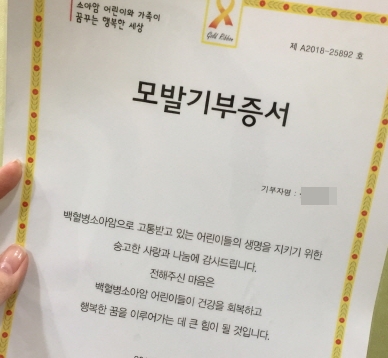 소아암 어린이와 가족이
꿈꾸는 행복한 세상
Gold Ribbon
제 A2018-25892 호
모발기부증서
기부자명 :
백혈병소아암으로 고통받고 있는 어린이들의 생명을 지키기 위한
숭고한 사랑과 나눔에 감사드립니다.
전해주신 마음은
백혈병소아암 어린이들이 건강을 회복하고
행복한 꿈을 이루어가는 데 큰 힘이 될 것입니다.